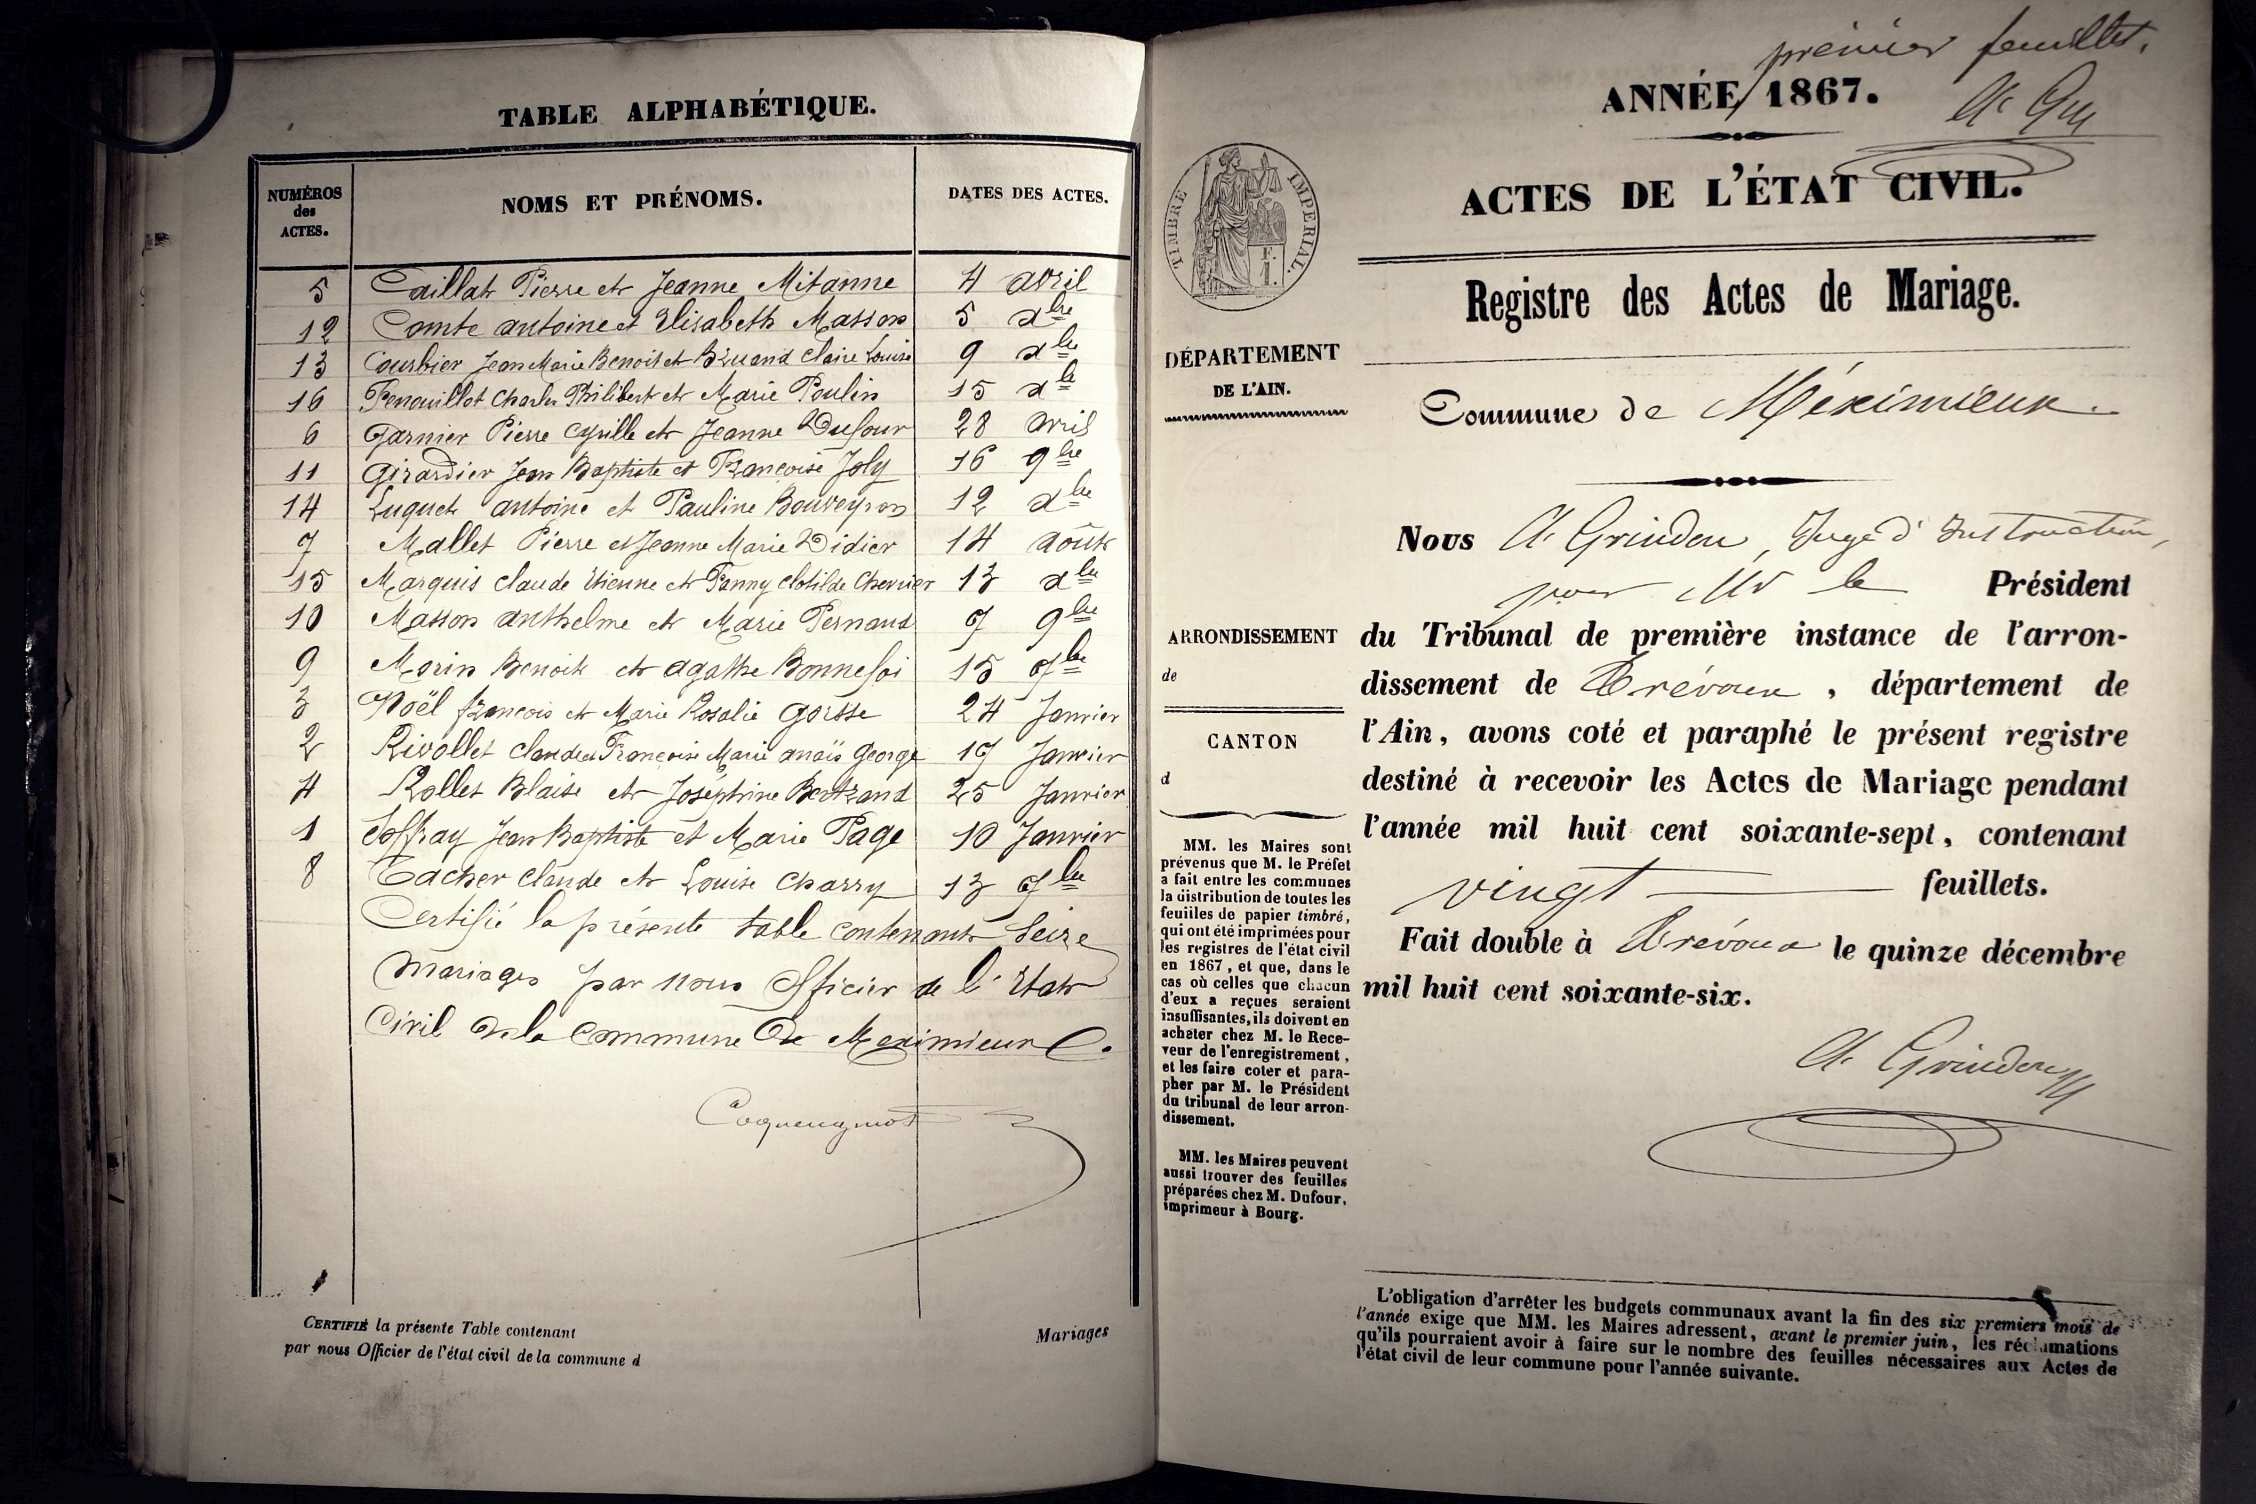 TABLE ALPHABÉTIQUE.
NUMÉROS
des
ACTES.
NOMS ET PRÉNOMS.
DATES DES ACTES.
5 Caillat Pierre et Jeanne Mitanne 4 avril
12 Comte antoine et Elisabeth Masson 5 xbre
13 Courbier Jean Marie Benoit et Bruand Claire Louise 9 xbre
16 Fenouillot Charles Philibert et Marie Poulin 15 xbre
6 Garnier Pierre Cyrille et Jeanne Dufour 28 avril
11 Girardier Jean Baptiste et Françoise Joly 16 9bre
14 Luquet antoine et Pauline Bouveyron 12 xbre
7 Mallet Pierre et Jeanne Marie Didier 14 août
15 Marquis Claude Etienne et Fanny Clotilde Chevrier 13 xbre
10 Masson anthelme et Marie Pernaud 7 9bre
9 Morin Benoit et agathe Bonnefoi 15 7bre
3 Noël françois et Marie Rosalie Gorsse 24 Janvier
2 Rivollet Claude et Françoise Marie anaïs George 17 Janvier
4 Rollet Blaise et Joséphine Bertrand 25 Janvier
1 Soffray Jean Baptiste et Marie Page 10 Janvier
8 Tacher Claude et Louise Charry 13 7bre
Certifié la présente table contenant Seize
Mariages par nous Officier de l'Etat
Civil de la Commune De Meximieux
CERTIFIÉ la présente Table contenant Mariages
par nous Officier de l'état civil de la commune d
premier feuillet.
ANNÉE 1867.
ACTES DE L'ÉTAT CIVIL.
TIMBRE IMPERIAL.
Registre des Actes de Mariage.
DÉPARTEMENT
DE L'AIN.
Commune de Méximieux.
Nous A. Grindon, Juge d'Instruction,
pour Mr le Président
du Tribunal de première instance de l'arron-
dissement de Trévoux, département de
l'Ain, avons coté et paraphé le présent registre
destiné à recevoir les Actes de Mariage pendant
l'année mil huit cent soixante-sept, contenant
vingt feuillets.
Fait double à Trévoux le quinze décembre
mil huit cent soixante-six.
A. Grindon
ARRONDISSEMENT
de
CANTON
d
MM. les Maires sont
prévenus que M. le Préfet
a fait entre les communes
la distribution de toutes les
feuilles de papier timbré,
qui ont été imprimées pour
les registres de l'état civil
en 1867, et que, dans le
cas où celles que chacun
d'eux a reçues seraient
insuffisantes, ils doivent en
acheter chez M. le Rece-
veur de l'enregistrement,
et les faire coter et para-
pher par M. le Président
du tribunal de leur arron-
dissement.
MM. les Maires peuvent
aussi trouver des feuilles
préparées chez M. Dufour,
imprimeur à Bourg.
L'obligation d'arrêter les budgets communaux avant la fin des six premiers mois de
l'année exige que MM. les Maires adressent, avant le premier juin, les réclamations
qu'ils pourraient avoir à faire sur le nombre des feuilles nécessaires aux Actes de
l'état civil de leur commune pour l'année suivante.